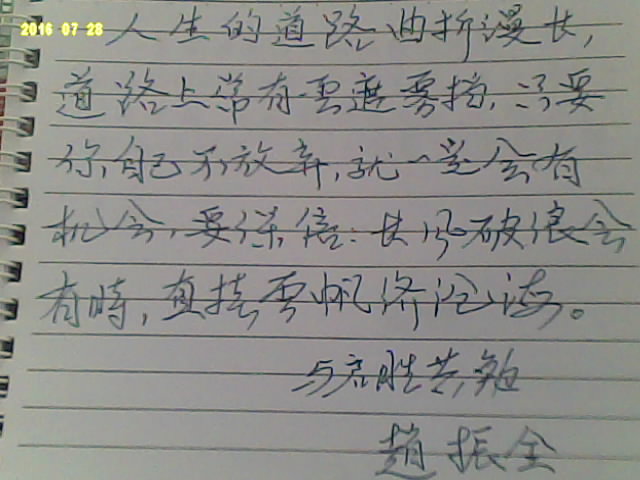 2016 07 28
人生的道路曲折漫长,
道路上常有雲遮雾挡,只要
你自己不放弃,就一定会有
机会,要深信:长风破浪会
有時,直挂雲帆济沧海。
与启胜共勉
趙振全